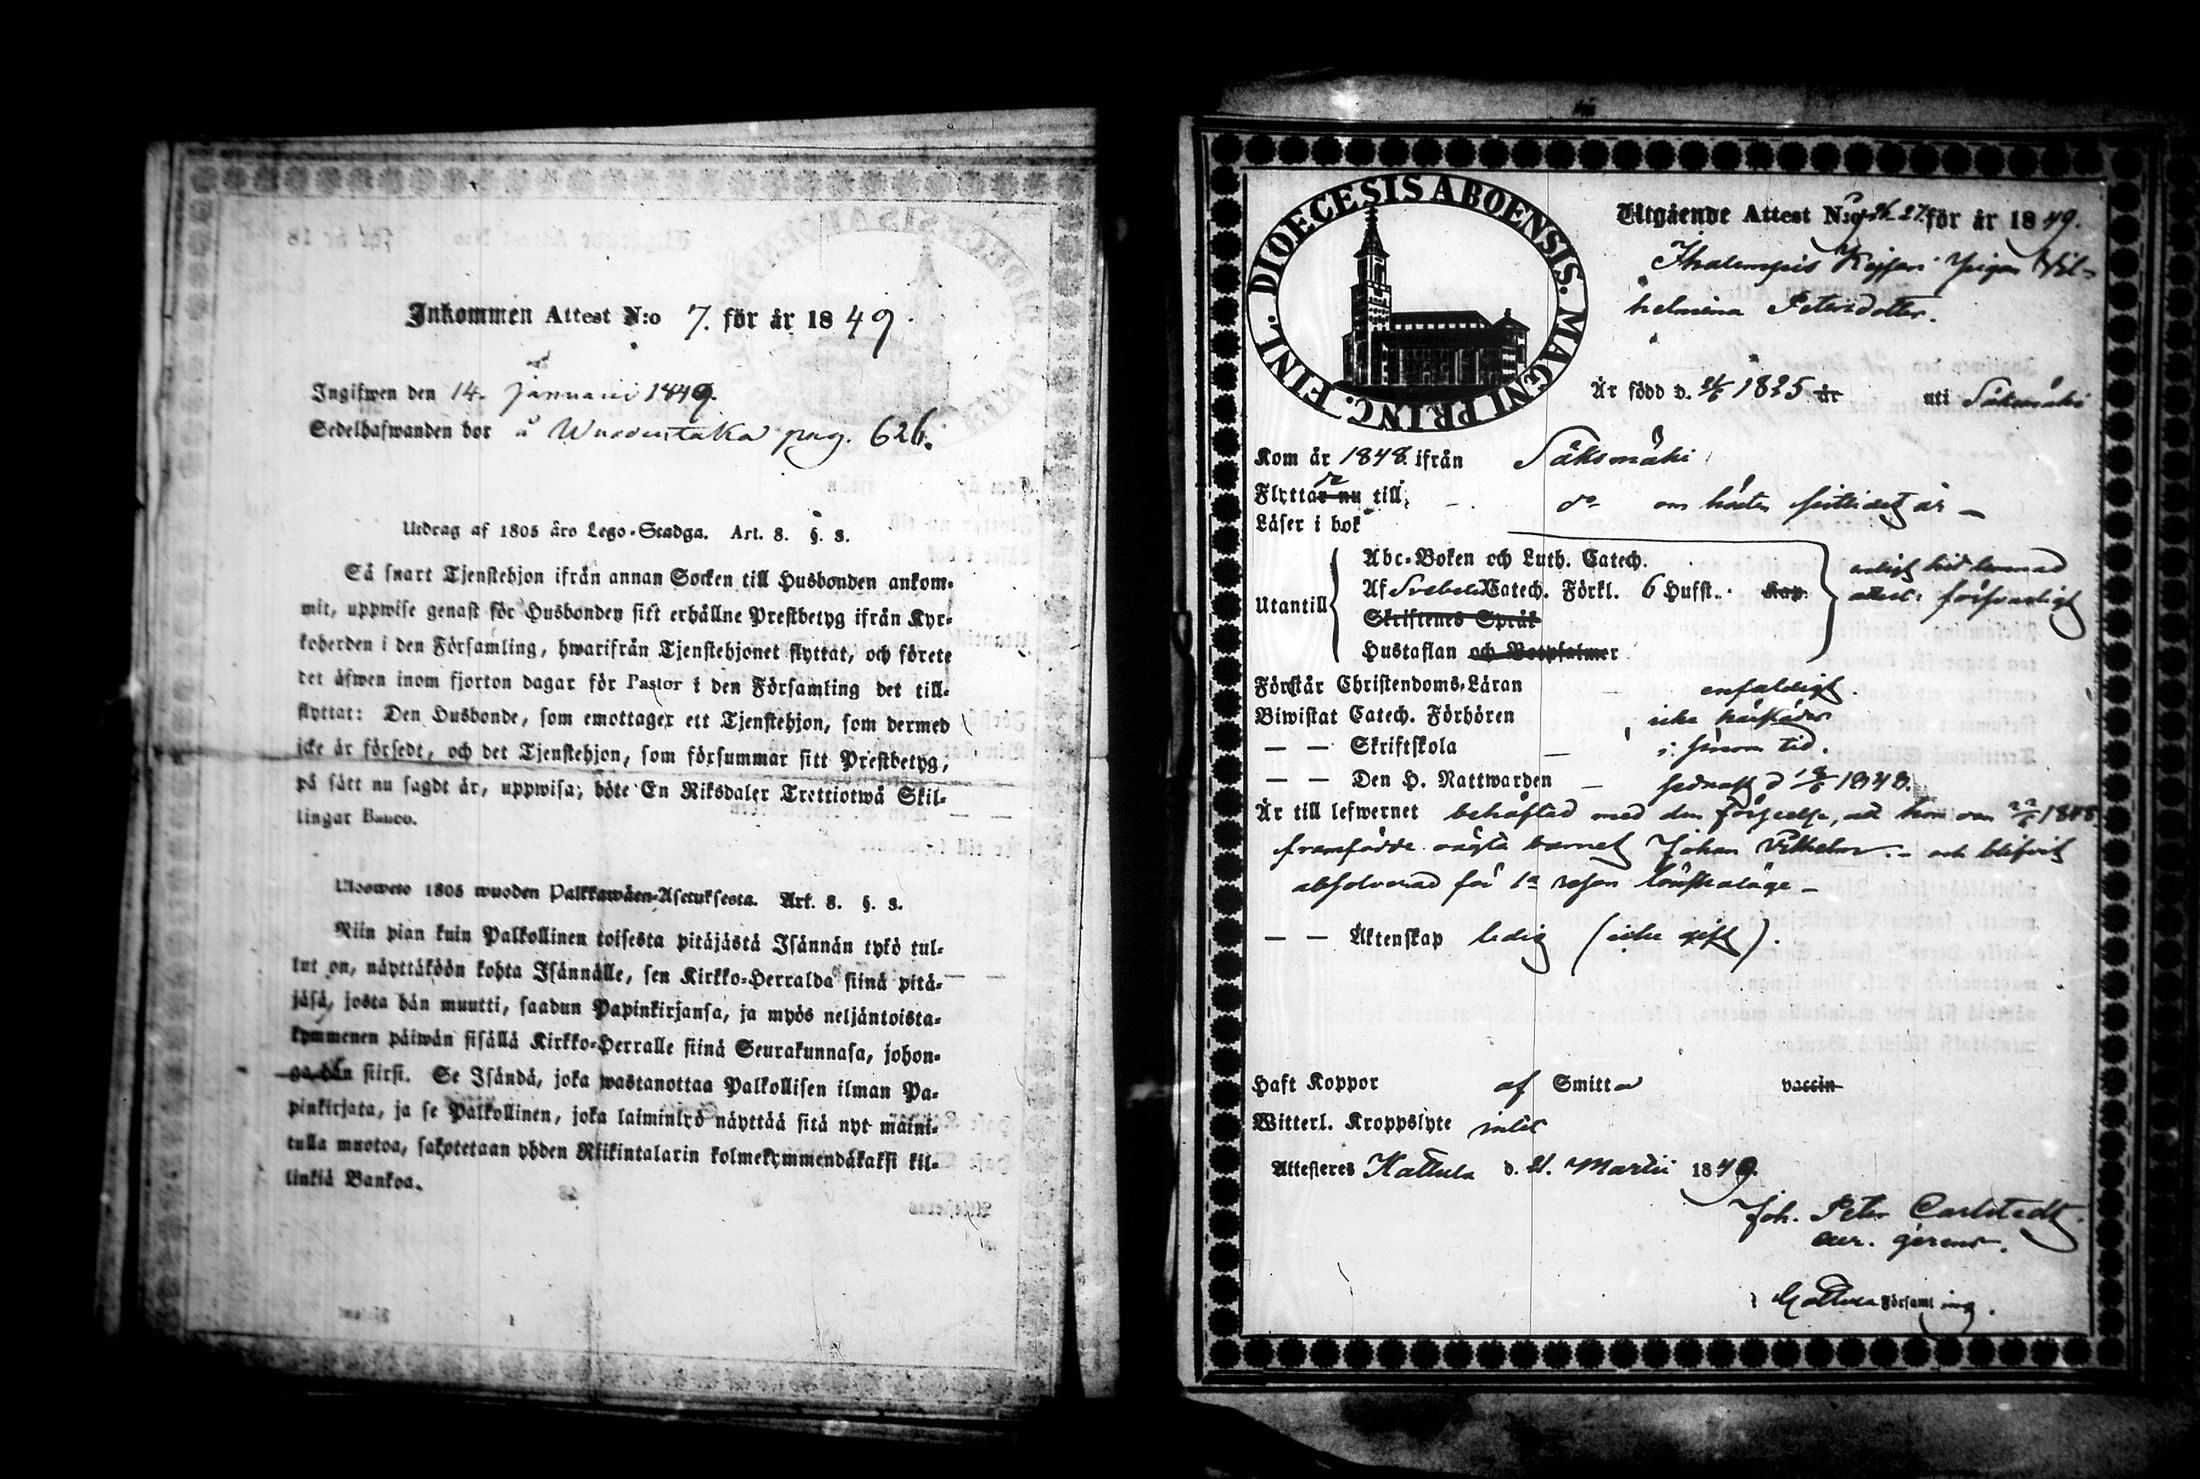 Inkommen Attest N:o 7. för år 1849.
Ingifwen den 14. januarii 1849.
Sedelhafwanden bor å Wuodentaka pag. 626.
Utdrag af 1805 års Lego-Stadga. Art. 8. §. 3.
Så snart Tjenstehjon ifrån annan Socken till Husbonden ankom-
mit, uppwise genast för Husbonden sitt erhållne Prestbetyg ifrån Kyr-
koherden i den Församling, hwarifrån Tjenstehjonet flyttat, och förete
det äfwen inom fjorton dagar för Pastor i den Församling det till-
flyttat: Den Husbonde, som emottager ett Tjenstehjon, som dermed
icke är försedt, och det Tjenstehjon, som försummar sitt Prestbetyg,
på sätt nu sagdt är, uppwisa, böte En Riksdaler Trettiotwå Skil-
lingar Banco.
Ulosweto 1805 wuoden Palkkawäen-Asetuksesta. Art. 8. §. 3.
Niin pian kuin Palkollinen toisesta pitäjästä Isännän tykö tul-
lut on, näyttäköön kohta Isännälle, sen Kirkko-Herralda siinä pitä-
jäsä, josta hän muutti, saadun Papinkirjansa, ja myös neljäntoista-
kymmenen päiwän sisällä Kirkko-Herralle siinä Seurakunnasa, johon-
ga hän siirsi. Se Isändä, joka wastanottaa Palkollisen ilman Pa-
pinkirjata, ja se Palkollinen, joka laiminlyö näyttää sitä nyt maini-
tulla muotoa, sakotetaan yhden Riikintalarin kolmekymmendäkaksi kil-
linkiä Bankoa.
DIOECESIS ABOENSIS. MAGNI PRINC. FINL.
Utgående Attest N:o 27. för år 1849.
pigan Vil-
helmina Petersdotter.
Är född d. 1825 år uti Säksmäki
Kom år 1848. ifrån Säksmäki
Flyttar nu till do om
Läser i bok
Utantill
Abc-Boken och Luth. Catech.
Af Svebelii Catech. Förkl. 6 Hufst. Kap.
Skriftenes Språk
Hustaflan och Botpsalmer
Förstår Christendoms-Läran enfaldigt.
Biwistat Catech. Förhören icke härstädes
— — Skriftskola i sinom tid.
— — Den H. Nattwarden sednast d 1848.
Är till lefwernet behäftad med den förseelse, att hon den 1848
framfödde oägta barnet Johan Vilhelm. – och blifvit
absolverad för 1a resan lönskaläge –
— — Äktenskap ledig (icke gift).
Haft Koppor af Smitta vaccin
Witterl. Kroppslyte intet
Attesteras Hattula d. 21. Martii 1849.
Joh. Peter Carlstedt.
cur. gerens.
i Hattula Församling.